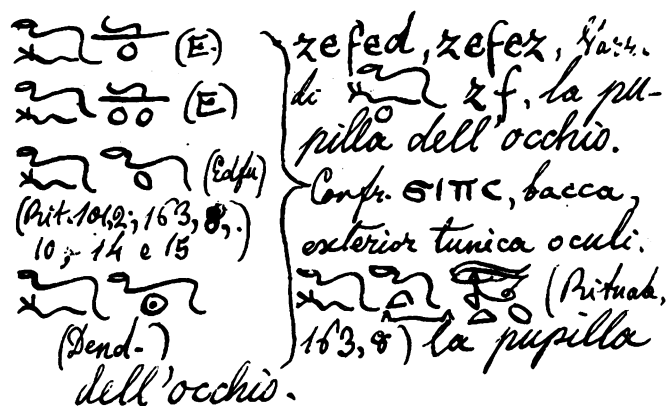 (E.)
(E)
(Edfu)
(Rit. 101,2; 163, 8,
10; 14 e 15)
(Dend-)
zefed, zefez, Varr.
di zf, la pu-
pilla dell'occhio.
Confr. ϭⲓⲡⲥ, bacca,
exterior tunica oculi.
(Rituale,
163, 8) la pupilla
dell'occhio.